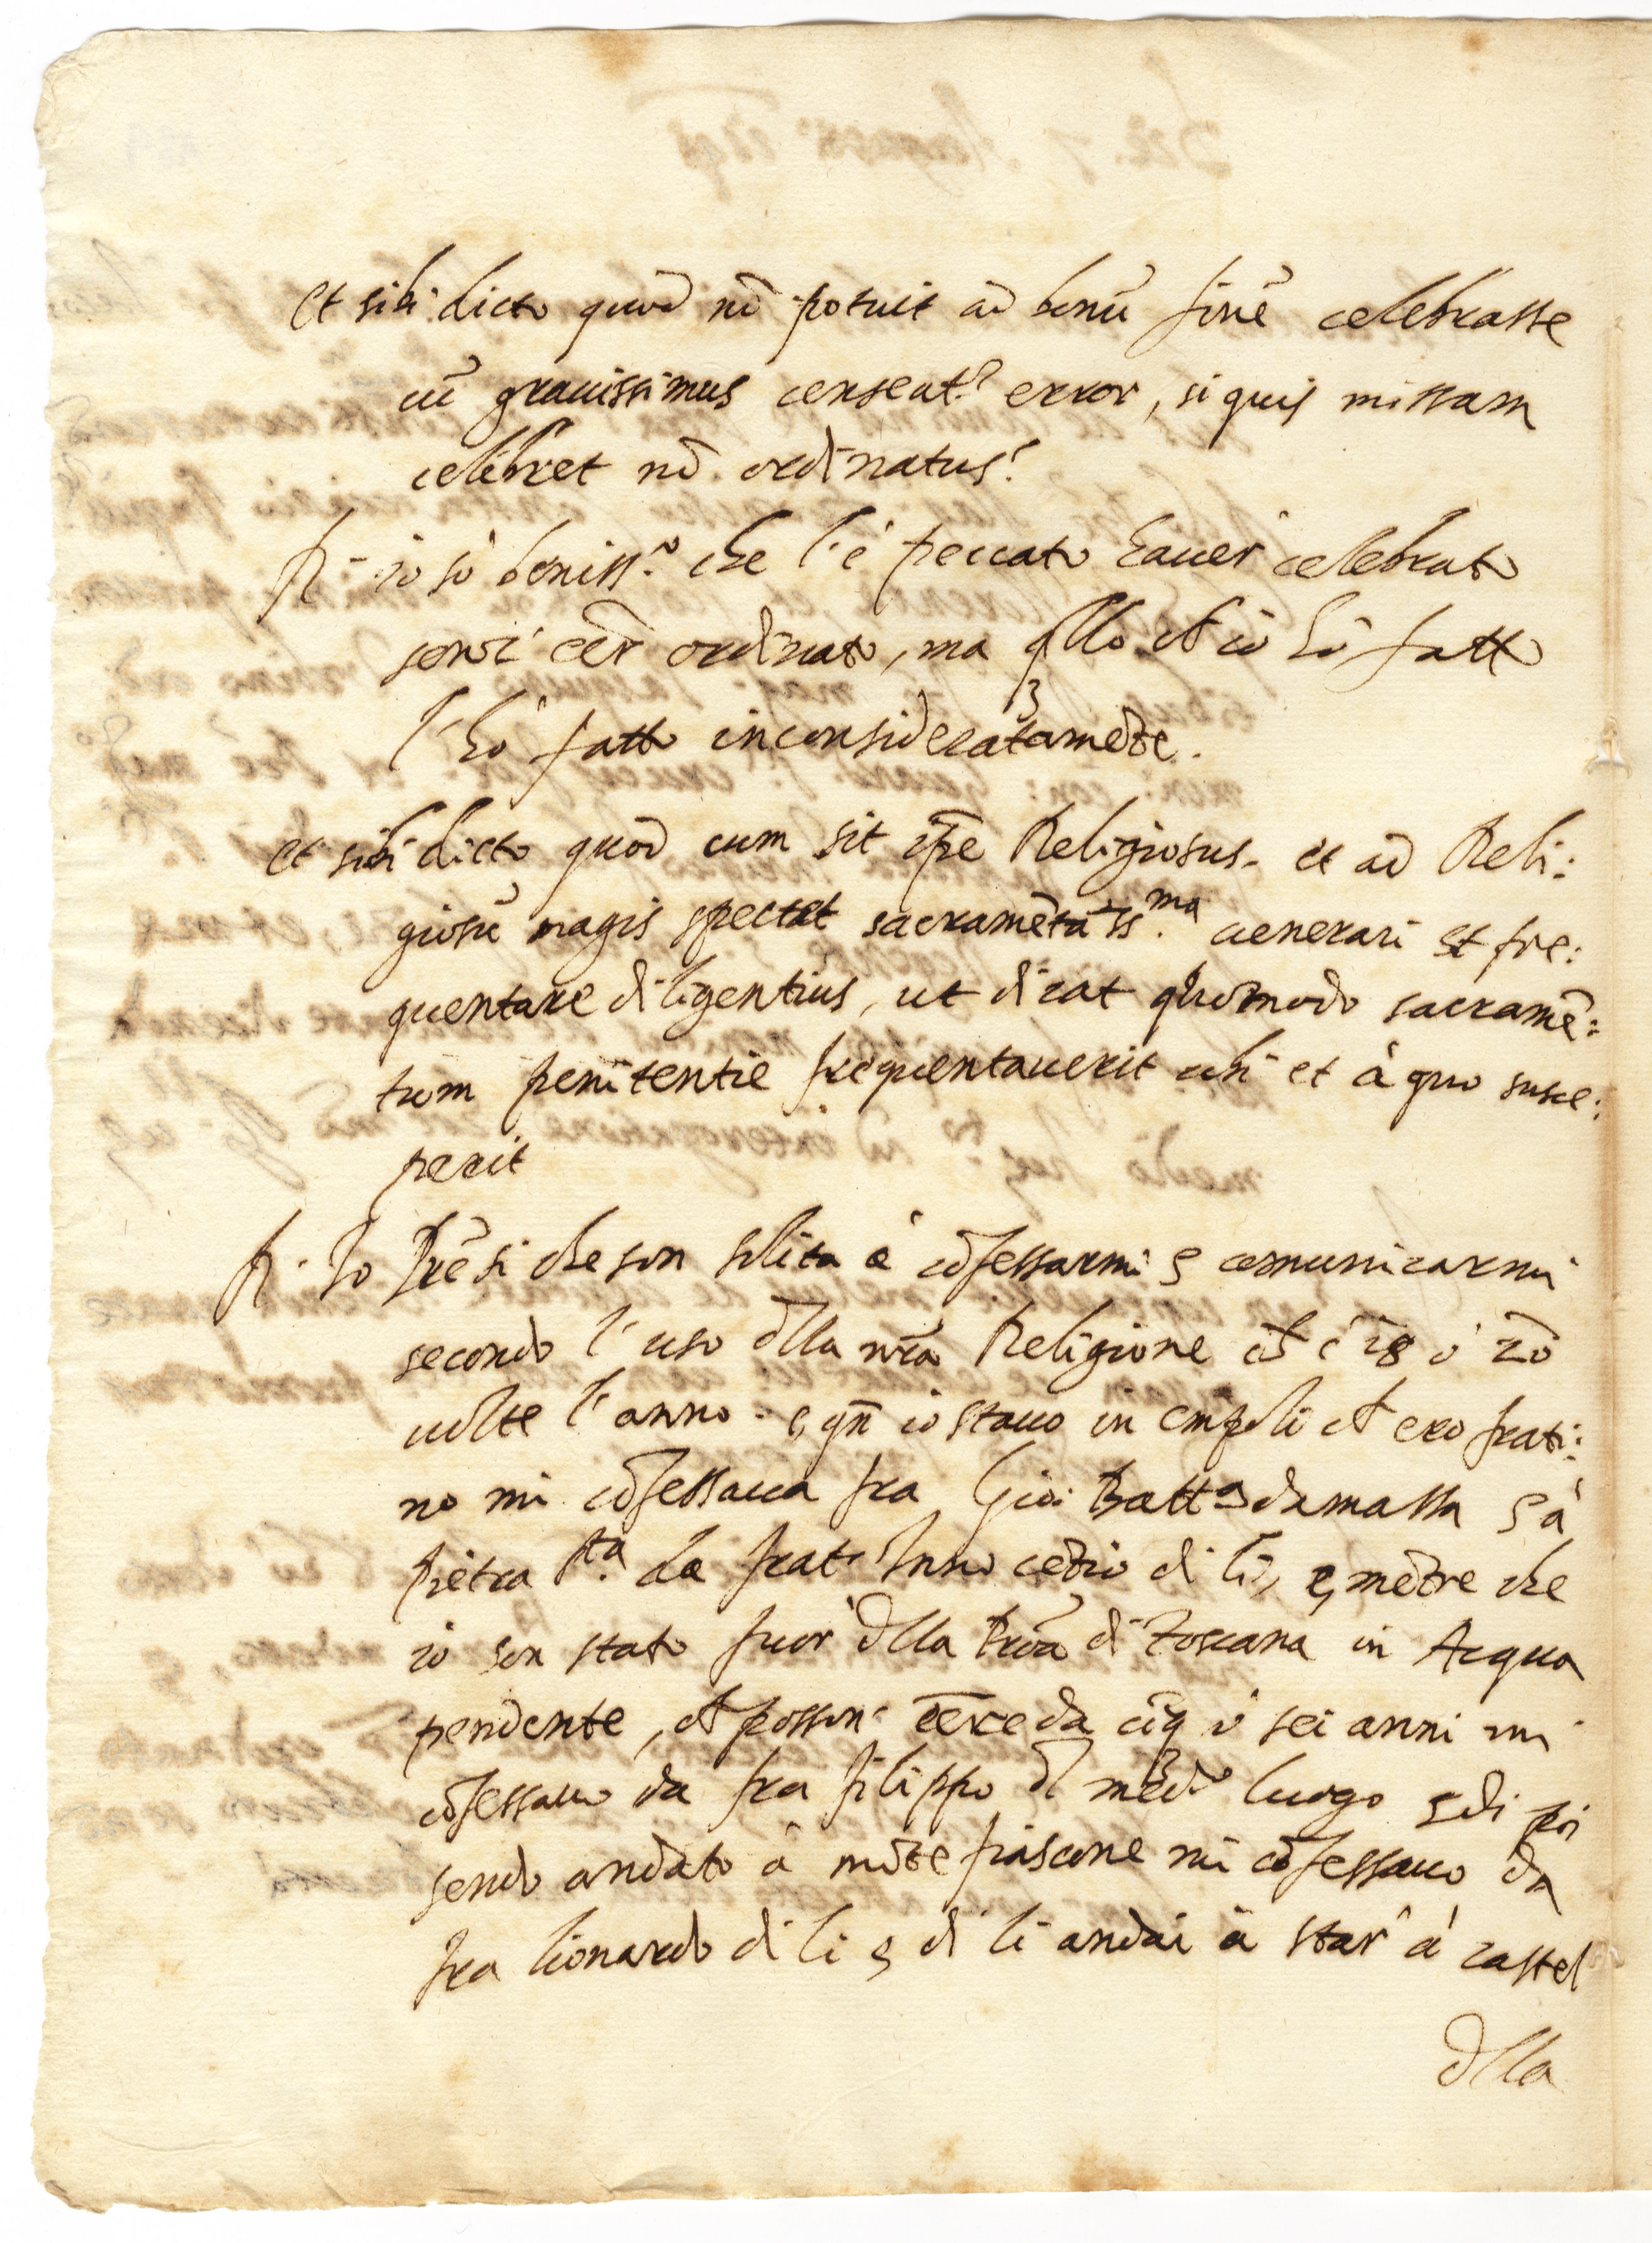 Et sibi dicto quod nō potuit ad bonū finē celebrasse
cū grauissimus censeat.r error, si quis missam
celebret nō ordinatus?
R. io so beniss.o che l'è peccato hauer celebrato
senz' eēr ordinato, ma qllo ch' io ho fatto
l' ho fatto inconsideratamēte.
Et sibi dicto quod cum sit ipē Religiosus et ad Reli:
giosū magis spectet sacramēta ss.ma uenerari et fre:
quentare diligentius, ut dicat quomodo sacramē:
tum penitentie frequentauerit ubi et à quo susce:
perit
R. Io Prē si che son solito à cōfessarmi e comunicarmi
secondo l' uso dlla nrā Religione ch' è 18 ò 20
uolte l' anno e qn̄ io stauo in empoli ch' ero frati:
no mi cōfessaua fra Gio: Batt.a da massa e à
Pietra S.ta da frat' Innocētio di li, e mētre che
io son stato fuor dlla Prouā di Toscana in Acqua
pendente, ch' posson' eēre da cīq ò sei anni mi
cōfessauo da fra filippo dl med.o luogo e di poi
sendo andato à mōte fiascone mi cōfessauo da
fra lionardo di li e di li andai à star' à castel
dlla